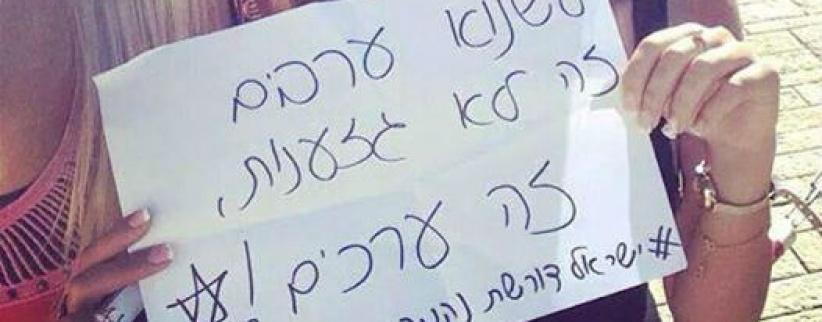 לשנוא ערבים
זה לא גזענות,
זה ערכים!
#ישראל דורשת